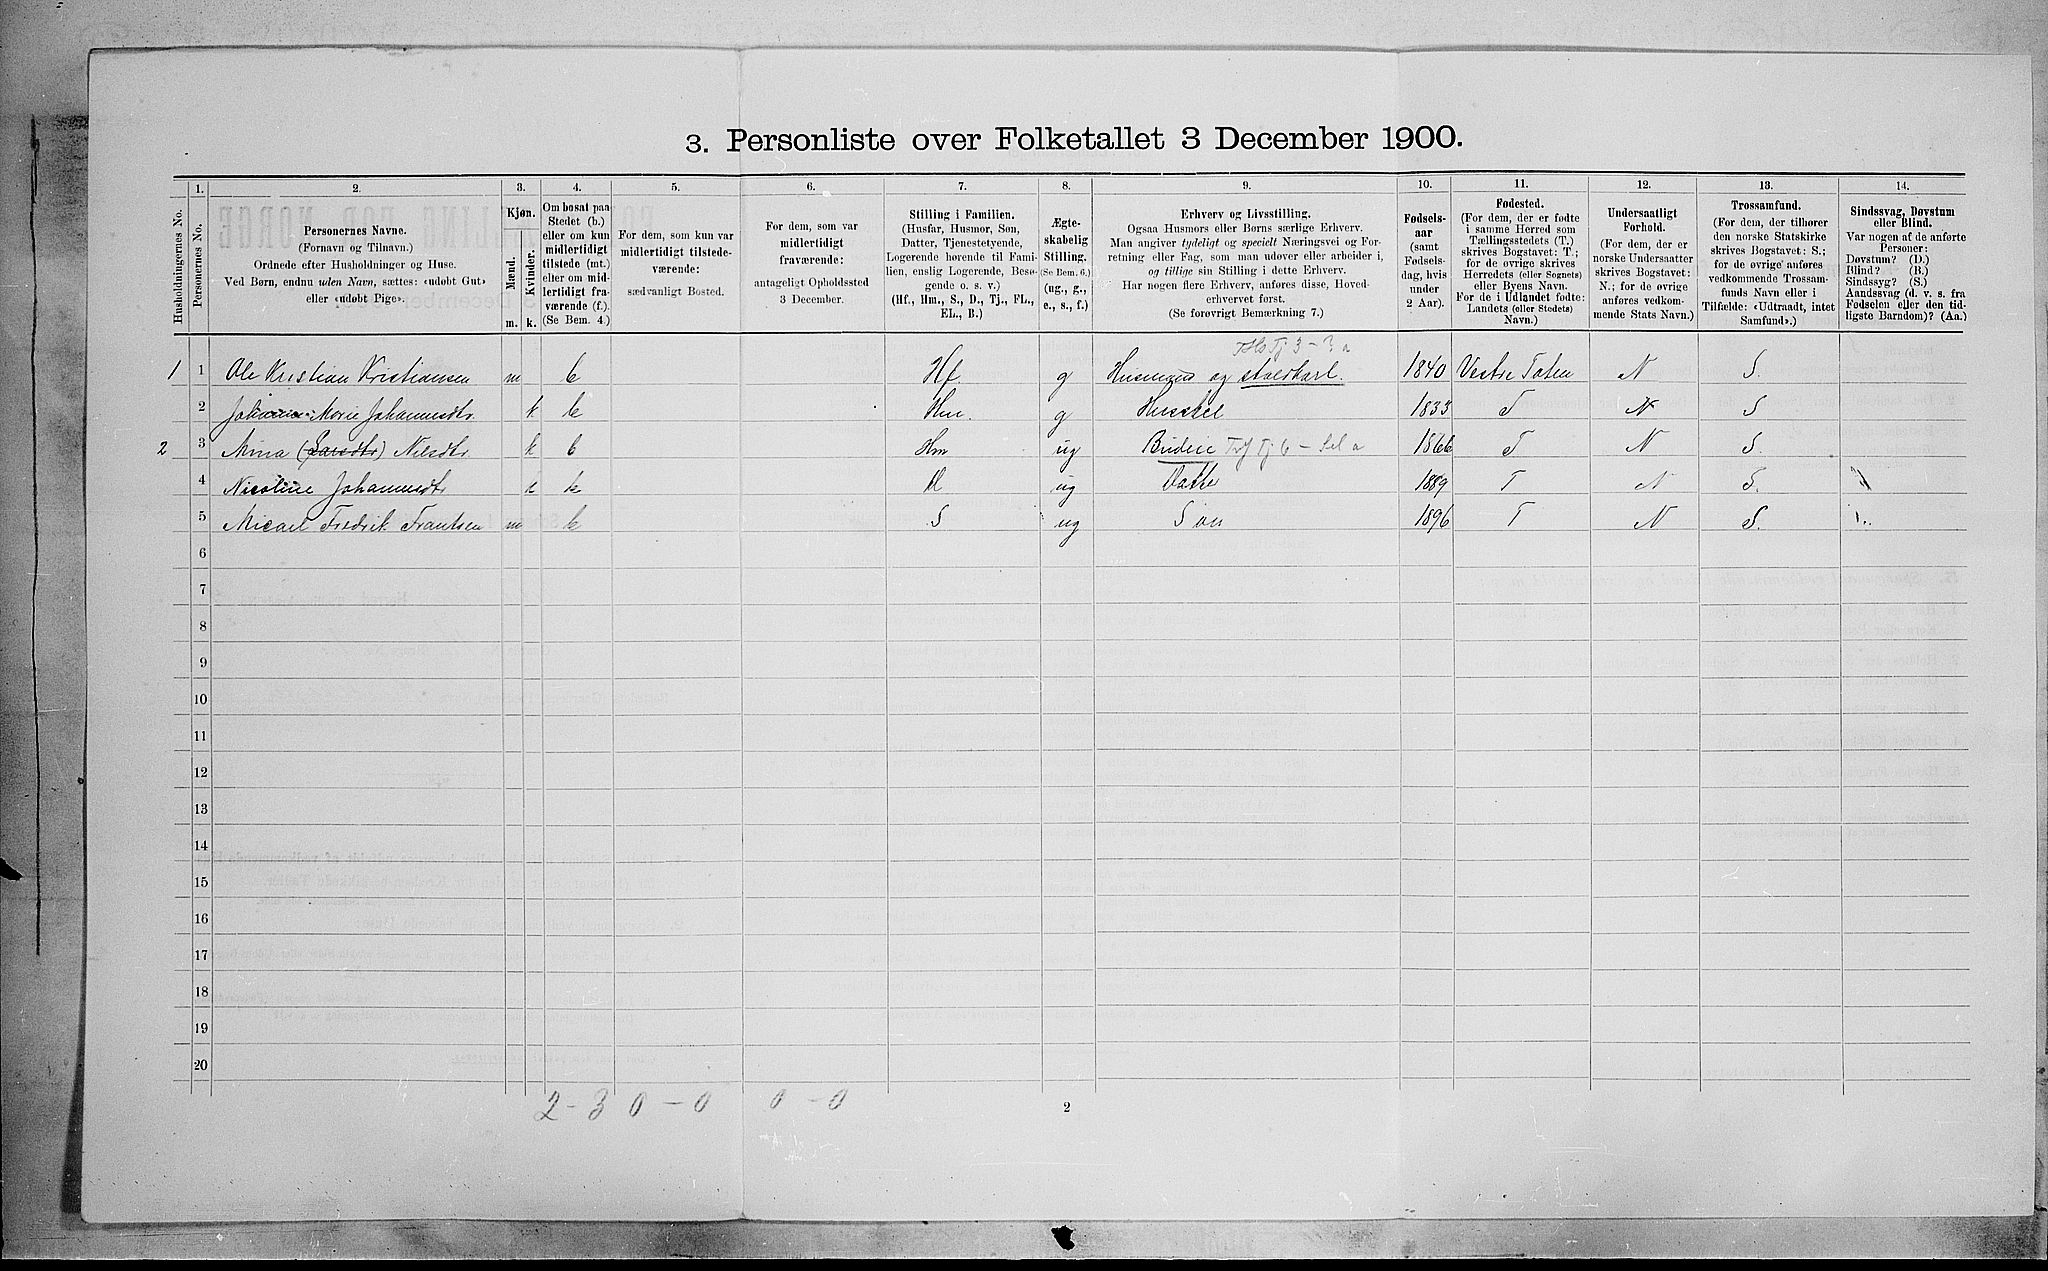 3. Personliste over Folketallet 3 December 1900.
1. 2. 3. 4. 5. 6. 7. 8. 9. 10. 11. 12. 13. 14.
Husholdningernes No.
Personernes No.
Personernes Navne.
(Fornavn og Tilnavn.)
Ordnede efter Husholdninger og Huse.
Ved Børn, endnu uden Navn, sættes: «udøbt Gut»
eller «udøbt Pige».
Kjøn.
Mænd.
Kvinder.
m. k.
Om bosat paa
Stedet (b.)
eller om kun
midlertidigt
tilstede (mt.)
eller om mid-
lertidigt fra-
værende (f.).
(Se Bem. 4.)
For dem, som kun var
midlertidigt tilstede-
værende:
sædvanligt Bosted.
For dem, som var
midlertidigt
fraværende:
antageligt Opholdssted
3 December.
Stilling i Familien.
(Husfar, Husmor, Søn,
Datter, Tjenestetyende,
Logerende hørende til Fami-
lien, enslig Logerende, Besø-
gende o. s. v.)
(Hf., Hm., S., D., Tj., FL.,
EL., B.)
Ægte-
skabelig
Stilling.
(Se Bem. 6.)
(ug., g.,
e., s., f.)
Erhverv og Livsstilling.
Ogsaa Husmors eller Børns særlige Erhverv.
Man angiver tydeligt og specielt Næringsvei og For-
retning eller Fag, som man udøver eller arbeider i,
og tillige sin Stilling i dette Erhverv.
Har nogen flere Erhverv, anføres disse, Hoved-
erhvervet først.
(Se forøvrigt Bemærkning 7.)
Fødsels-
aar
(samt
Fødsels-
dag, hvis
under
2 Aar).
Fødested.
(For dem, der er fødte
i samme Herred som
Tællingsstedets (T.)
skrives Bogstavet: T.;
for de øvrige skrives
Herredets (eller Sognets)
eller Byens Navn.
For de i Udlandet fødte:
Landets (eller Stedets)
Navn.)
Undersaatligt
Forhold.
(For dem, der er
norske Undersaatter
skrives Bogstavet:
N.; for de øvrige
anføres vedkom-
mende Stats Navn.)
Trossamfund.
(For dem, der tilhører
den norske Statskirke
skrives Bogstavet: S.;
for de øvrige anføres
vedkommende Trossam-
funds Navn eller i
Tilfælde: «Udtraadt, intet
Samfund».)
Sindssvag, Døvstum
eller Blind.
Var nogen af de anførte
Personer:
Døvstum? (D.)
Blind? (B.)
Sindssyg? (S.)
Aandssvag (d. v. s. fra
Fødselen eller den tid-
ligste Barndom)? (Aa.)
1 1 Ole Kristian Kristiansen m b Hf. g Husmand og staldkarl. 1840 Vestre Toten N S.
2 Marie Johannesdtr. k b Hm. g 1833 T N S
2 3 Mina (Larsdtr) Nilsdtr k b Hm ug Budeie 1866 T N S.
4 Nicoline Johannesdtr k b D ug Datter 1889 T N S.
5 Micael Fredrik Frantsen m b S ug Søn 1896 T N S.
6
7
8
9
10
11
12
13
14
15
16
17
18
19
20
2 - 3 0 - 0 0 - 0
2